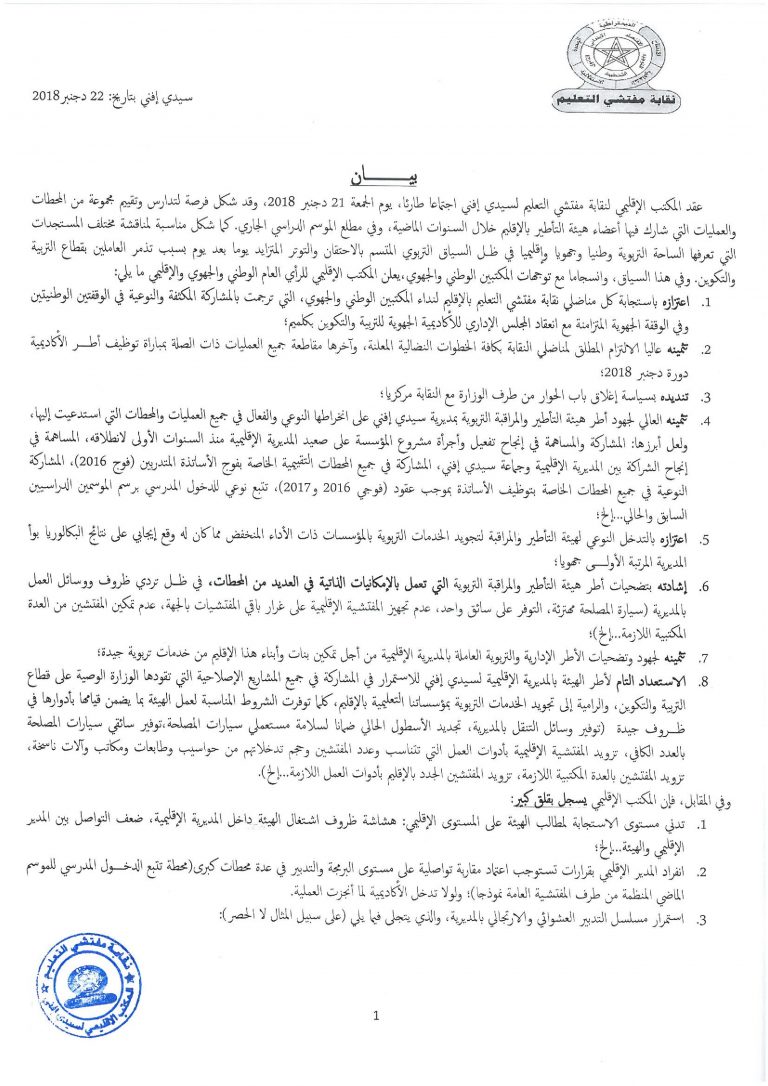 الديمقراطية
نقابة مفتشي التعليم
سيدي إفني بتاريخ: 22 دجنبر 2018
بيـــــان
عقد المكتب الإقليمي لنقابة مفتشي التعليم لسيدي إفني اجتماعا طارئا، يوم الجمعة 21 دجنبر 2018، وقد شكل فرصة لتدارس وتقييم مجموعة من المحطات
والعمليات التي شارك فيها أعضاء هيئة التأطير بالإقليم خلال السنوات الماضية، وفي مطلع الموسم الدراسي الجاري. كما شكل مناسبة لمناقشة مختلف المستجدات
التي تعرفها الساحة التربوية وطنيا وجهويا وإقليميا في ظـل السياق التربوي المتسم بالاحتقان والتوتر المتزايد يوما بعد يوم بسبب تذمر العاملين بقطاع التربية
والتكوين. وفي هذا السياق، وانسجاما مع توجهات المكتبين الوطني والجهوي،يعلن المكتب الإقليمي للرأي العام الوطني والجهوي والإقليمي ما يلي:
1. اعتزازه باستجابة كل مناضلي نقابة مفتشي التعليم بالإقليم لنداء المكتبين الوطني والجهوي، التي ترجمت بالمشاركة المكثفة والنوعية في الوقفتين الوطنيتين
وفي الوقفة الجهوية المتزامنة مع انعقاد المجلس الإداري للأكاديمية الجهوية للتربية والتكوين بكلميم؛
2. تثمينه عاليا الالتزام المطلق لمناضلي النقابة بكافة الخطوات النضالية المعلنة، وآخرها مقاطعة جميع العمليات ذات الصلة بمباراة توظيف أطـر الأكاديمية
دورة دجنبر 2018؛
3. تنديده بسياسة إغلاق باب الحوار من طرف الوزارة مع النقابة مركزيا؛
4. تثمينه العالي لجهود أطر هيئة التأطير والمراقبة التربوية بمديرية سيدي إفني على انخراطها النوعي والفعال في جميع العمليات والمحطات التي استدعيت إليها،
ولعل أبرزها: المشاركة والمساهمة في إنجاح تفعيل وأجرأة مشروع المؤسسة على صعيد المديرية الإقليمية منذ السنوات الأولى لانطلاقه، المساهمة في
إنجاح الشراكة بين المديرية الإقليمية وجماعة سيدي إفني، المشاركة في جميع المحطات التقييمية الخاصة بفوج الأساتذة المتدربين (فوج 2016)، المشاركة
النوعية في جميع المحطات الخاصة بتوظيف الأساتذة بموجب عقود (فوجي 2016 و2017)، تتبع نوعي للدخول المدرسي برسم الموسمين الدراسيين
السابق والحالي...إلخ؛
5. اعتزازه بالتدخل النوعي لهيئة التأطير والمراقبة لتجويد الخدمات التربوية بالمؤسسات ذات الأداء المنخفض مما كان له وقع إيجابي على نتائج البكالوريا بوأ
المديرية المرتبة الأولـى جهويا؛
6. إشادته بتضحيات أطر هيئة التأطير والمراقبة التربوية التي تعمل بالإمكانيات الذاتية في العديد من المحطات، في ظـل تردي ظروف ووسائل العمل
بالمديرية (سيارة المصلحة مهترئة، التوفر على سائق واحد، عدم تجهيز المفتشية الإقليمية على غرار باقي المفتشيات بالجهة، عدم تمكين المفتشين من العدة
المكتبية اللازمة...إلخ)؛
7. تثمينه لجهود وتضحيات الأطر الإدارية والتربوية العاملة بالمديرية الإقليمية من أجل تمكين بنات وأبناء هذا الإقليم من خدمات تربوية جيدة؛
8. الاستعداد التام لأطر الهيئة بالمديرية الإقليمية لسيدي إفني للاستمرار في المشاركة في جميع المشاريع الإصلاحية التي تقودها الوزارة الوصية على قطاع
التربية والتكوين، والرامية إلى تجويد الخدمات التربوية بمؤسساتنا التعليمية بالإقليم، كلما توفرت الشروط المناسبة لعمل الهيئة بما يضمن قيامها بأدوارها في
ظـروف جيدة (توفير وسائل التنقل بالمديرية، تجديد الأسطول الحالي ضمانا لسلامة مستعملي سيارات المصلحة،توفير سائقي سيارات المصلحة
بالعدد الكافي، تزويد المفتشية الإقليمية بأدوات العمل التي تتناسب وعدد المفتشين وحجم تدخلاتهم من حواسيب وطابعات ومكاتب وآلات ناسخة،
تزويد المفتشين بالعدة المكتبية اللازمة، تزويد المفتشين الجدد بالإقليم بأدوات العمل اللازمة...إلخ).
وفي المقابل، فإن المكتب الإقليمي يسجل بقلق كبير:
1. تدني مستوى الاستجابة لمطالب الهيئة على المستوى الإقليمي: هشاشة ظروف اشتغال الهيئة داخل المديرية الإقليمية، ضعف التواصل بين المدير
الإقليمي والهيئة...إلخ؛
2. انفراد المدير الإقليمي بقرارات تستوجب اعتماد مقاربة تواصلية على مستوى البرمجة والتدبير في عدة محطات كبرى(محطة تتبع الدخـول المدرسي للموسم
الماضي المنظمة من طرف المفتشية العامة نموذجا)؛ ولولا تدخل الأكاديمية لما أنجزت العملية.
3. استمرار مسلسل التدبير العشوائي والارتجالي بالمديرية، والذي يتجلى فيما يلي (على سبيل المثال لا الحصر):
نقابة مفتشي التعليم
المكتب الإقليمي لسيدي إفني
1